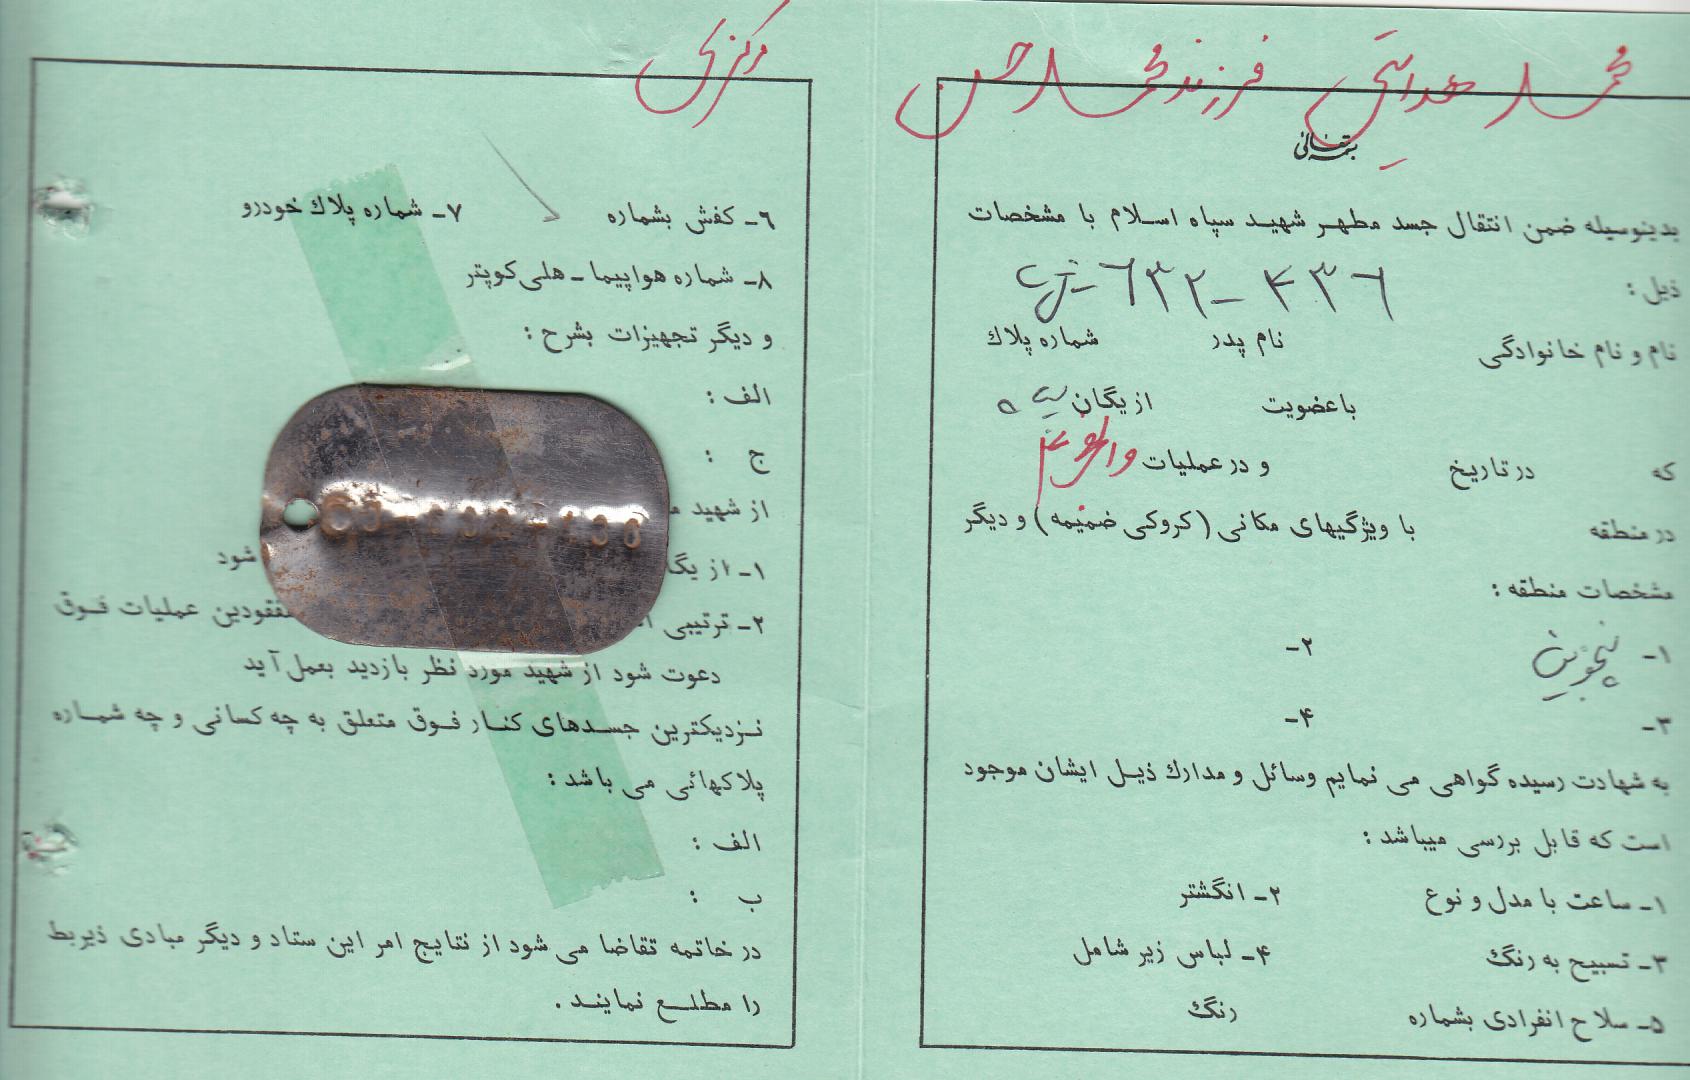 محمد هدایتی فرزند محمد حسن
بسمه تعالی
بدینوسیله ضمن انتقال جسد مطهر شهید سپاه اسلام با مشخصات
ذیل : ۴۳۶ – ۶۳۲ –
نام و نام خانوادگی نام پدر شماره پلاك
با عضویت از یگان
که در تاریخ و در عملیات والفجر ۴
در منطقه با ویژگیهای مکانی (کروکی ضمیمه) و دیگر
مشخصات منطقه :
۱– پنجوین ۲–
۳– ۴–
به شهادت رسیده گواهی می نمایم وسائل و مدارك ذیل ایشان موجود
است که قابل بررسی میباشد :
۱– ساعت با مدل و نوع ۲– انگشتر
۳– تسبیح به رنگ ۴– لباس زیر شامل
۵– سلاح انفرادی بشماره رنگ
مرکزی
۶– کفش بشماره ۷– شماره پلاك خودرو
۸– شماره هواپیما – هلی کوپتر
و دیگر تجهیزات بشرح :
الف :
ج :
از شهید
۱– از یگا شود
۲– ترتیبی مفقودین عملیات فوق
دعوت شود از شهید مورد نظر بازدید بعمل آید
نزدیکترین جسدهای کنار فوق متعلق به چه کسانی و چه شماره
پلاکهائی می باشد :
الف :
ب :
در خاتمه تقاضا می شود از نتایج امر این ستاد و دیگر مبادی ذیربط
را مطلع نمایند .